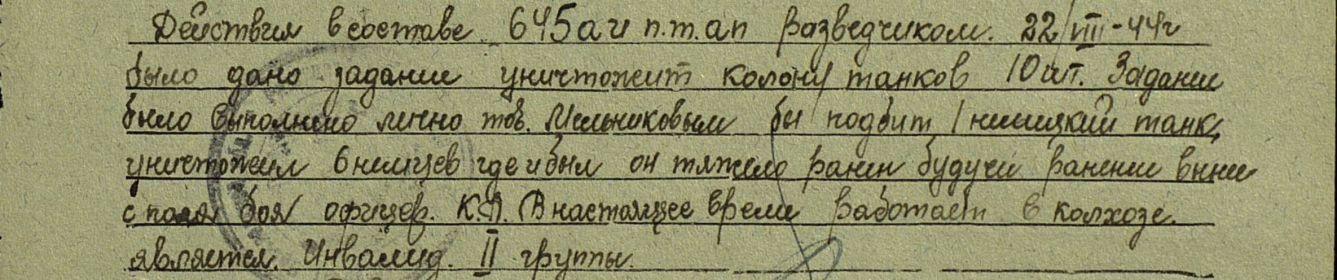 Действия в составе 645 ач п.т.ап разведчиком. 22/VIII-44г
было дано задание уничтожит колону танков 10 шт. Задание
было выполнено лично тов. Мельниковым бы подбит 1 нимицкий танк,
уничтожил 6 нимцев где и был он тяжело ранен будучи ранение вынес
с поля боя офицер. К.А. В настоящее время работает в колхозе.
является. Инвалид. II группы.